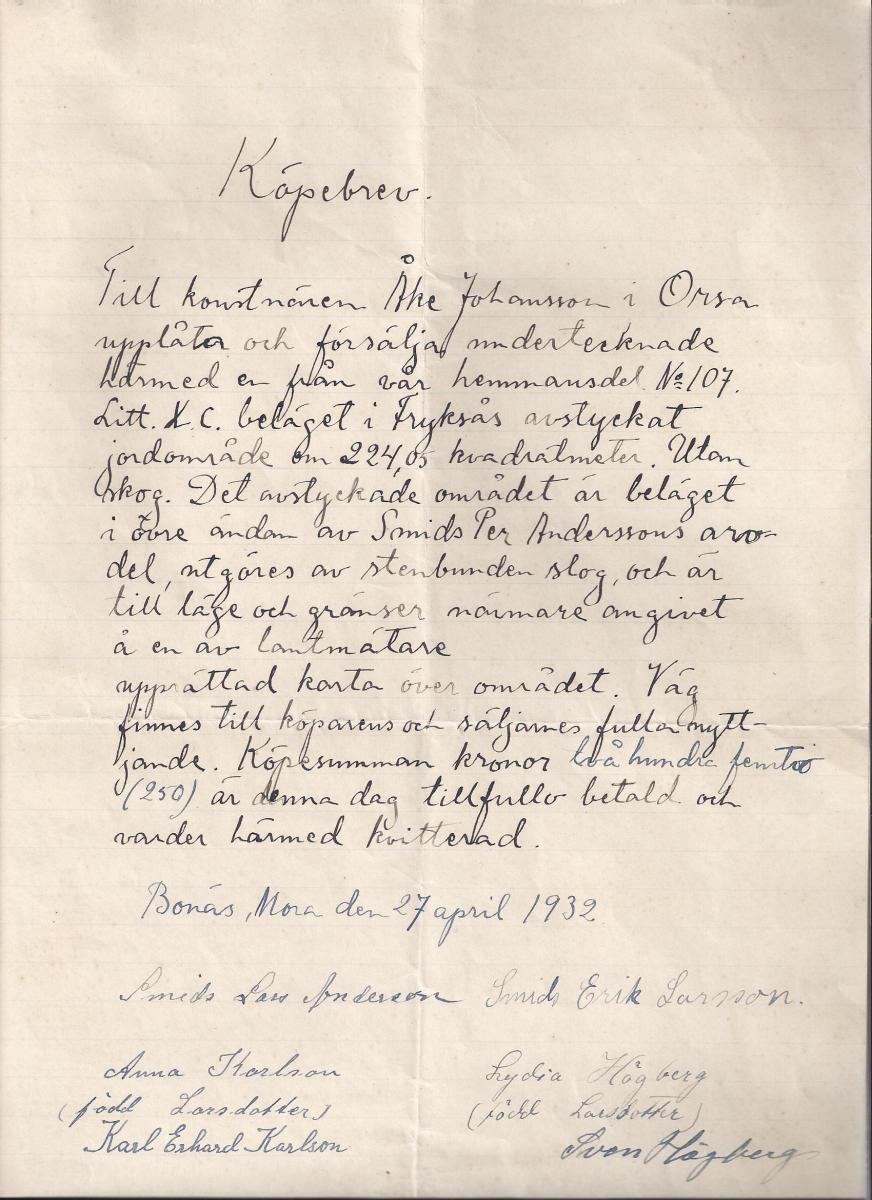 Köpebrev.
Till konstnären Åke Johansson i Orsa
upplåta och försälja undertecknade
härmed en från vår hemmansdel No 107.
Litt. X.C. beläget i Fryksås avstyckat
jordområde om 224,05 kvadratmeter. Utan
skog. Det avstyckade området är beläget
i övre ändan av Smids Per Anderssons arv-
del, utgöres av stenbunden slog, och är
till läge och gränser närmare angivet
å en av lantmätare
upprättad karta över området. Väg
finnes till köparens och säljarnes fulla nytt-
jande. Köpesumman kronor två hundra femtio
(250) är denna dag tillfullo betald och
varder härmed kvitterad.
Bonäs, Mora den 27 april 1932
Smids Lars Anderson Smids Erik Larsson.
Anna Karlson Lydia Högberg
(född Larsdotter) (född Larsdotter)
Karl Erhard Karlson Sven Högberg